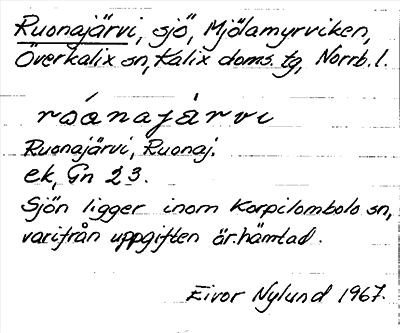 Ruonajärvi, sjö, Mjölamyrviken,
Överkalix sn, Kalix doms. tg, Norrb. l.
rså̀najàrvi
Ruonajärvi, Ruonaj.
ek, Gn 23.
Sjön ligger inom Korpilombolo sn,
varifrån uppgiften är hämtad.
Eivor Nylund 1967.